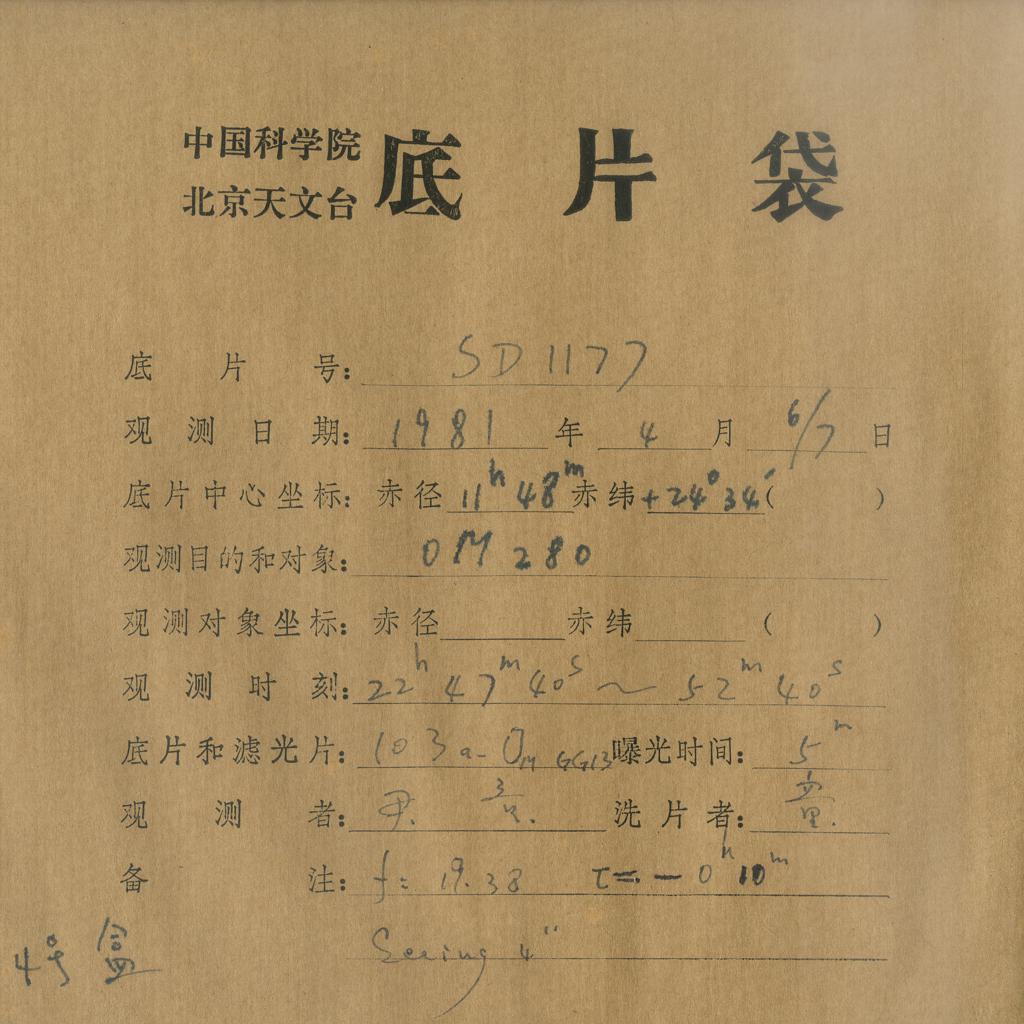 中国科学院
北京天文台 底片袋
底片号: SD1177
观测日期: 1981 年 4 月 6/7 日
底片中心坐标: 赤径 11h 48m 赤纬 +24° 34′ ( )
观测目的和对象: OM 280
观测对象坐标: 赤径 赤纬 ( )
观测时刻: 22h 47m 40s ~ 52m 40s
底片和滤光片: 103a-O GG13 曝光时间: 5m
观测者: 洗片者:
备注: f = 19.38 τ = -0h 10m
Seeing 4″
4号盒